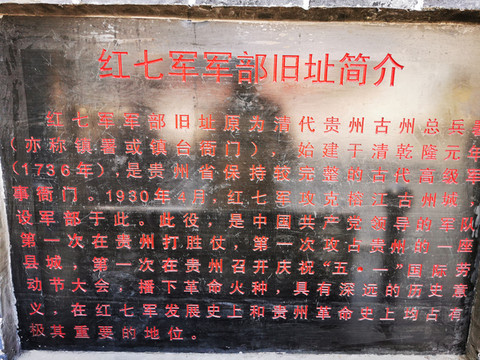 红七军军部旧址简介
红七军军部旧址原为清代贵州古州总兵
(亦称镇署或镇台衙门),始建于清乾隆元年
(1736年),是贵州省保持较完整的古代高级军
事衙门。1930年4月,红七军攻克榕江古州城,
设军部于此。此役,是中国共产党领导的军队
第一次在贵州打胜仗,第一次攻占贵州的一座
县城,第一次在贵州召开庆祝“五·一”国际劳
动节大会,播下革命火种,具有深远的历史意
义,在红七军发展史上和贵州革命史上均占有
极其重要的地位。